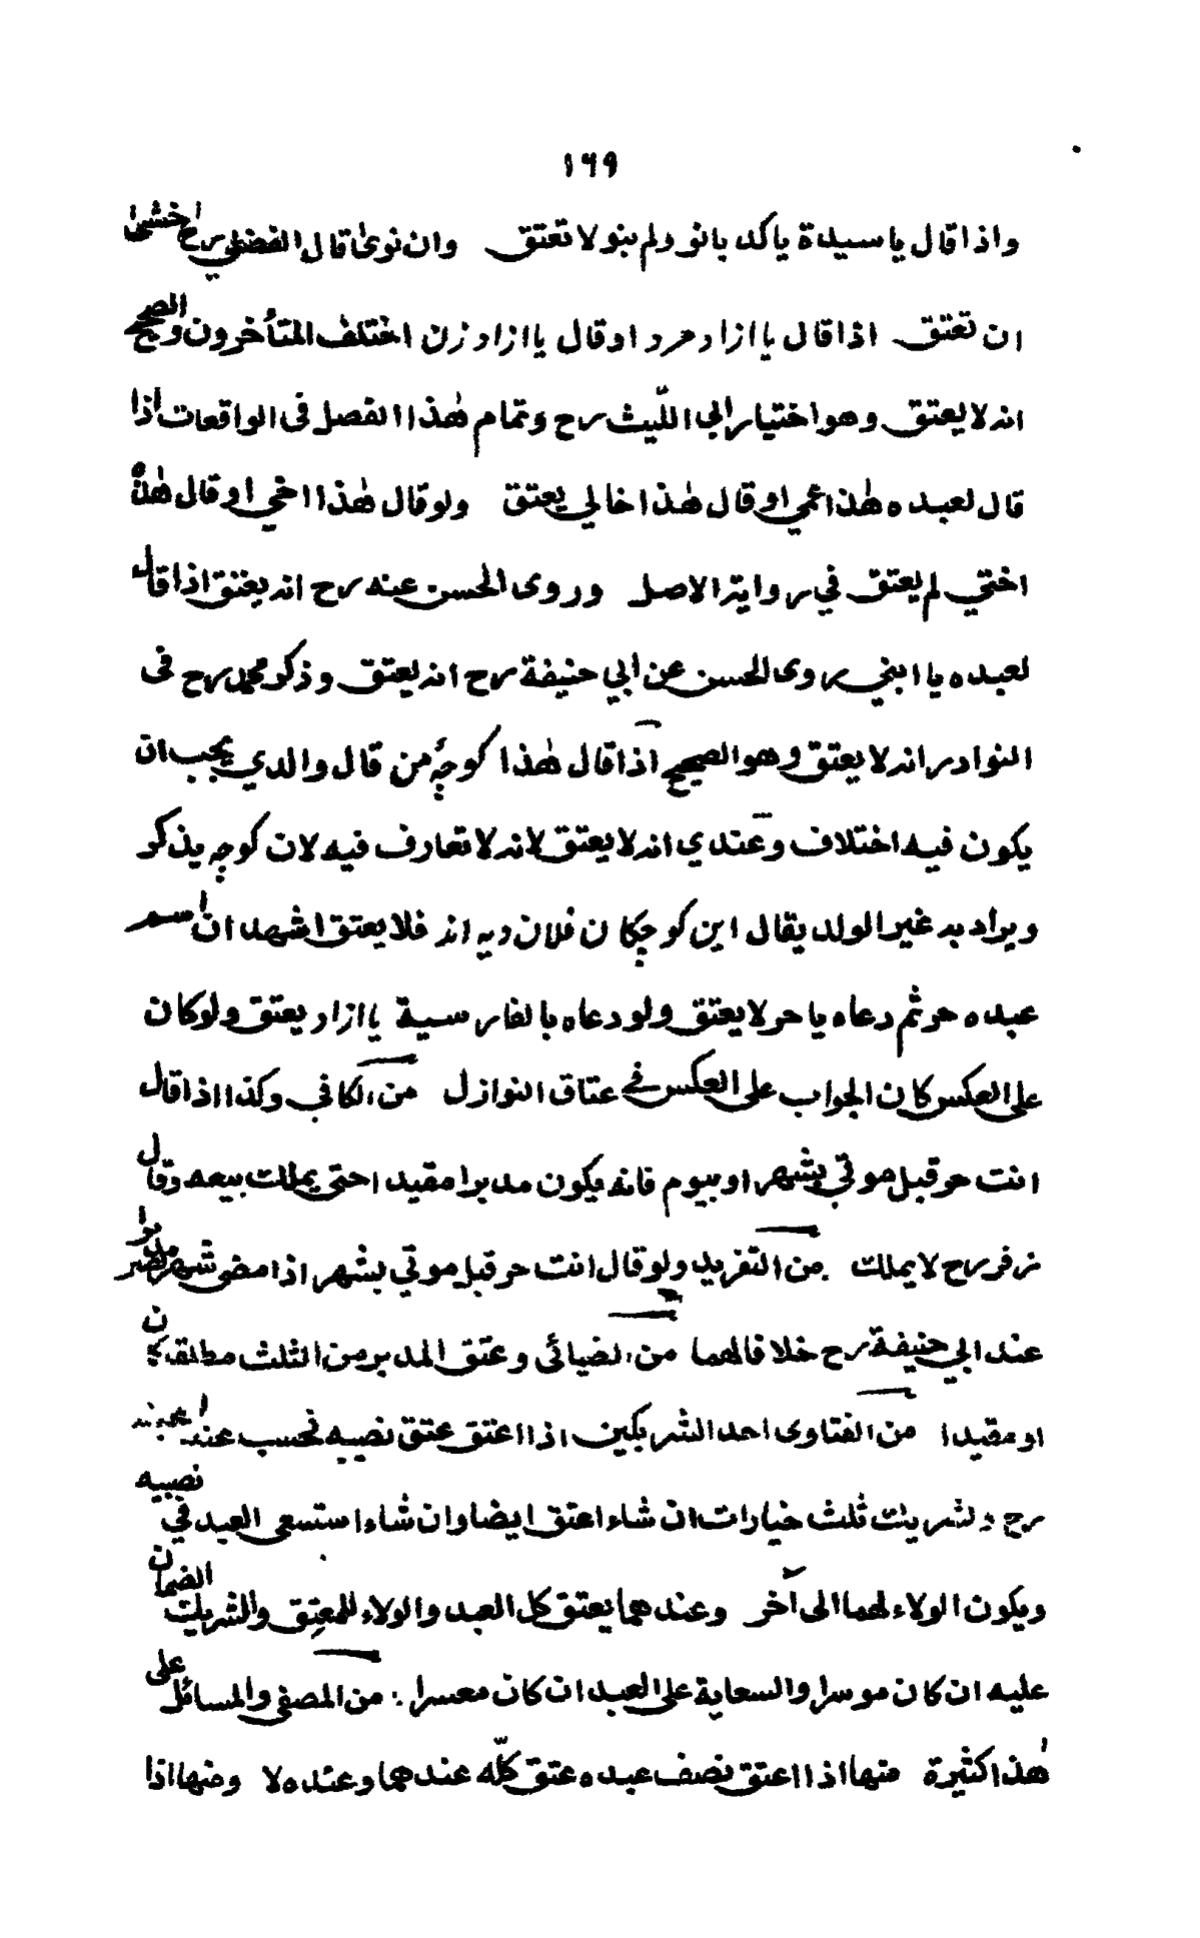 ١٦٩
واذا قال يا سيدة يا كد بانو ولم ينو لا تعتق وان نوى قال الفضلي رح اخشى
ان تعتق اذا قال يا ازاد مرد او قال يا ازاد زن اختلف المتأخرون والصحيح
انه لا يعتق وهو اختيار ابي الليث رح وتمام هذا الفصل فى الواقعات اذا
قال لعبده هذا عمي او قال هذا خالي يعتق ولو قال هذا اخي او قال هذه
اختي لم يعتق في رواية الاصل وروى الحسن عنه رح انه يعتق اذا قال
لعبده يا ابني روى الحسن عن ابي حنيفة رح انه يعتق وذكر محمد رح فى
النوادر انه لا يعتق وهو الصحيح اذا قال هذا كوچهٔ من قال والدي يجب ان
يكون فيه اختلاف وعندي انه لا يعتق لانه لا تعارف فيه لان كوچه يذكر
ويراد به غير الولد يقال اين كوچكان فلان ديه اند فلا يعتق اشهد ان اسم
عبده حر ثم دعاه يا حر لا يعتق ولو دعاه بالفارسية يا ازاد يعتق ولو كان
على العكس كان الجواب على العكس في عتاق النوازل من الكافي وكذا اذا قال
انت حر قبل موتي بشهر او بيوم فانه يكون مدبرا مقيدا حتى يملك بيعه وقال
زفر رح لا يملك من التفريد ولو قال انت حر قبل موتي بشهر اذا مضى شهر يصير مدبرا
عند ابي حنيفة رح خلافا لهما من الضيائى وعتق المدبر من الثلث مطلقا كان
او مقيدا من الفتاوى احد الشريكين اذا اعتق عتق نصيبه فحسب عند ابيحنيفه
رح ولشريك ثلث خيارات ان شاء اعتق ايضا وان شاء استسعى العبد في نصيبه
ويكون الولاء لهما الى آخر وعندهما يعتق كل العبد والولاء للمعتِق والشريك الضمان
عليه ان كان موسرا والسعاية على العبد ان كان معسرا من المصفى والمسائل على
هذا كثيرة منها اذا اعتق نصف عبده عتق كلّه عندهما وعنده لا ومنها اذا